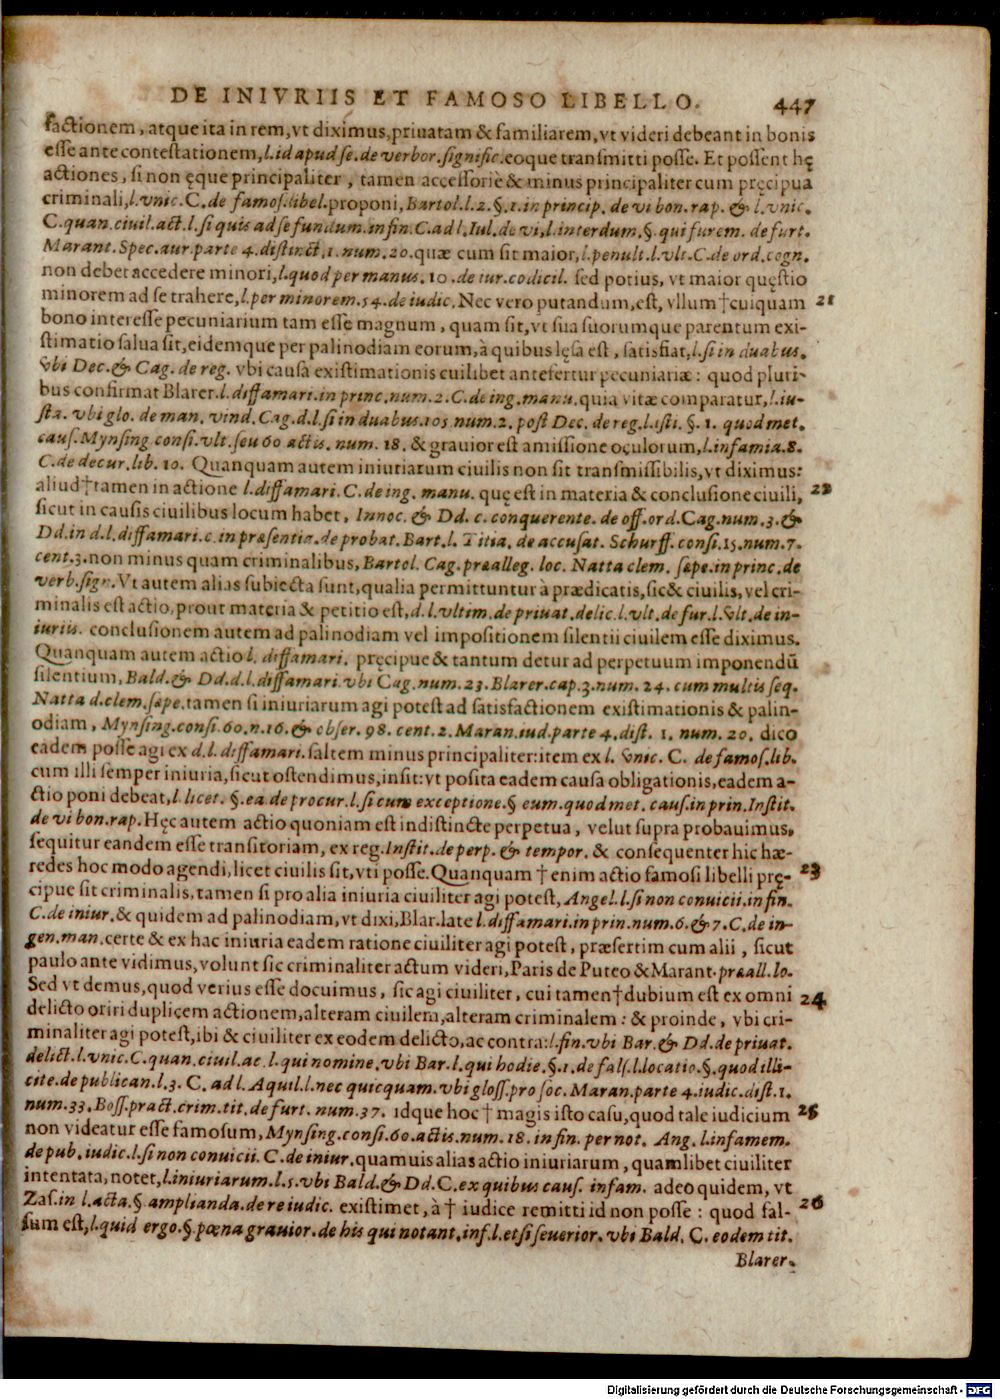 DE INIVRIIS ET FAMOSO LIBELLO. 447
factionem, atque ita in rem, vt diximus, priuatam & familiarem, vt videri debeant in bonis
esse ante contestationem, l. id apud se. de verbor. signific. eoque transmitti posse. Et possent hę
actiones, si non ęque principaliter, tamen accessoriè & minus principaliter cum pręcipua
criminali, l. vnic. C. de famos. libel. proponi, Bartol. l. 2. §. 1. in princip. de vi bon. rap. & l. vnic.
C. quan. ciuil. act. l. si quis ad se fundum. in fin. C. ad l. Iul. de vi, l. interdum. §. qui furem. de furt.
Marant. Spec. aur. parte 4. distinct. 1. num. 20. quæ cum sit maior, l. penult. l. vlt. C. de ord. cogn.
non debet accedere minori, l. quod per manus. 10. de iur. codicil. sed potius, vt maior quęstio
minorem ad se trahere, l. per minorem. 54. de iudic. Nec vero putandum, est, vllum † cuiquam 21
bono interesse pecuniarium tam esse magnum, quam sit, vt sua suorumque parentum exi-
stimatio salua sit, eidemque per palinodiam eorum, à quibus lęsa est, satisfiat, l. si in duabus.
vbi Dec. & Cag. de reg. vbi causa existimationis cuilibet antefertur pecuniariæ: quod pluri-
bus confirmat Blarer. l. diffamari. in princ. num. 2. C. de ing. manu. quia vitæ comparatur, l. iu-
sta. vbi glo. de man. vind. Cag. d. l. si in duabus. 105. num. 2. post Dec. de reg. l. isti. §. 1. quod met.
caus. Mynsing. consi. vlt. seu 60 actis. num. 18. & grauior est amissione oculorum, l. infamia. 8.
C. de decur. lib. 10. Quanquam autem iniuriarum ciuilis non sit transmissibilis, vt diximus:
aliud † tamen in actione l. diffamari. C. de ing. manu. quę est in materia & conclusione ciuili, 22
sicut in causis ciuilibus locum habet, Innoc. & Dd. c. conquerente. de off. ord. Cag. num. 3. &
Dd. in d. l. diffamari. c. in præsentia. de probat. Bart. l. Titia. de accusat. Schurff. consi. 15. num. 7.
cent. 3. non minus quam criminalibus, Bartol. Cag. præalleg. loc. Natta clem. sæpe. in princ. de
verb. sign. Vt autem alias subiecta sunt, qualia permittuntur à prædicatis, sic & ciuilis, vel cri-
minalis est actio, prout materia & petitio est, d. l. vltim. de priuat. delic. l. vlt. de fur. l. vlt. de in-
iuriis. conclusionem autem ad palinodiam vel impositionem silentii ciuilem esse diximus.
Quanquam autem actio l. diffamari. pręcipue & tantum detur ad perpetuum imponendū
silentium, Bald. & Dd. d. l. diffamari. vbi Cag. num. 23. Blarer. cap. 3. num. 24. cum multis seq.
Natta d. clem. sæpe. tamen si iniuriarum agi potest ad satisfactionem existimationis & palin-
odiam, Mynsing. consi. 60. n. 16. & obser. 98. cent. 2. Maran. iud. parte 4. dist. 1. num. 20. dico
eadem posse agi ex d. l. diffamari. saltem minus principaliter: item ex l. vnic. C. de famos. lib.
cum illi semper iniuria, sicut ostendimus, insit: vt posita eadem causa obligationis, eadem a-
ctio poni debeat, l. licet. §. ea. de procur. l. si cum exceptione. § eum. quod met. caus. in prin. Instit.
de vi bon. rap. Hęc autem actio quoniam est indistincte perpetua, velut supra probauimus,
sequitur eandem esse transitoriam, ex reg. Instit. de perp. & tempor. & consequenter hic hæ-
redes hoc modo agendi, licet ciuilis sit, vti posse. Quanquam † enim actio famosi libelli prę- 23
cipue sit criminalis, tamen si pro alia iniuria ciuiliter agi potest, Angel. l. si non conuicii. in fin.
C. de iniur. & quidem ad palinodiam, vt dixi, Blar. late l. diffamari. in prin. num. 6. & 7. C. de in-
gen. man. certe & ex hac iniuria eadem ratione ciuiliter agi potest, præsertim cum alii, sicut
paulo ante vidimus, volunt sic criminaliter actum videri, Paris de Puteo & Marant. præall. lo.
Sed vt demus, quod verius esse docuimus, sic agi ciuiliter, cui tamen † dubium est ex omni 24
delicto oriri duplicem actionem, alteram ciuilem, alteram criminalem: & proinde, vbi cri-
minaliter agi potest, ibi & ciuiliter ex eodem delicto, ac contra: l. fin. vbi Bar. & Dd. de priuat.
delict. l. vnic. C. quan. ciuil. ac. l. qui nomine. vbi Bar. l. qui hodie. §. 1. de fals. l. locatio. §. quod illi-
cite. de publican. l. 3. C. ad l. Aquil. l. nec quicquam. vbi gloss. pro soc. Maran. parte 4. iudic. dist. 1.
num. 33. Boss. pract. crim. tit. de furt. num. 37. idque hoc † magis isto casu, quod tale iudicium 25
non videatur esse famosum, Mynsing. consi. 60. actis. num. 18. in fin. per not. Ang. l. infamem.
de pub. iudic. l. si non conuicii. C. de iniur. quamuis alias actio iniuriarum, quamlibet ciuiliter
intentata, notet, l. iniuriarum. l. 5. vbi Bald. & Dd. C. ex quibus caus. infam. adeo quidem, vt
Zas. in l. acta. §. amplianda. de re iudic. existimet, à † iudice remitti id non posse: quod fal- 26
sum est, l. quid ergo. §. pœna grauior. de his qui notant. inf. l. etsi seuerior. vbi Bald. C. eodem tit.
Blarer.
Digitalisierung gefördert durch die Deutsche Forschungsgemeinschaft - DFG